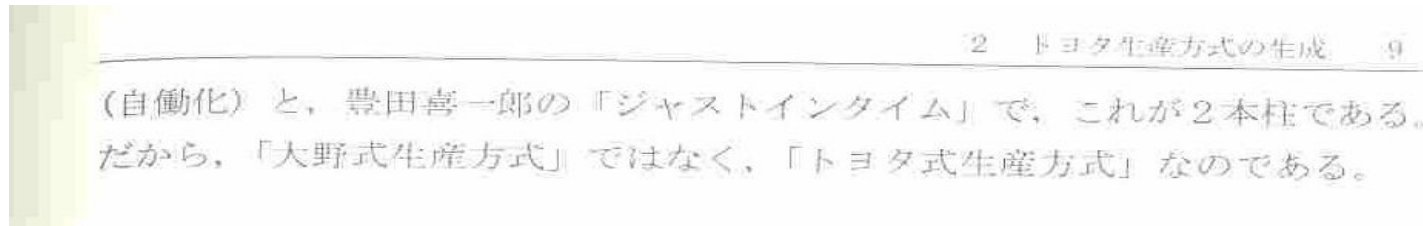 2 トヨタ生産方式の生成 9
(自働化) と，豊田喜一郎の「ジャストインタイム」で，これが2本柱である。
だから，「大野式生産方式」ではなく，「トヨタ式生産方式」なのである。